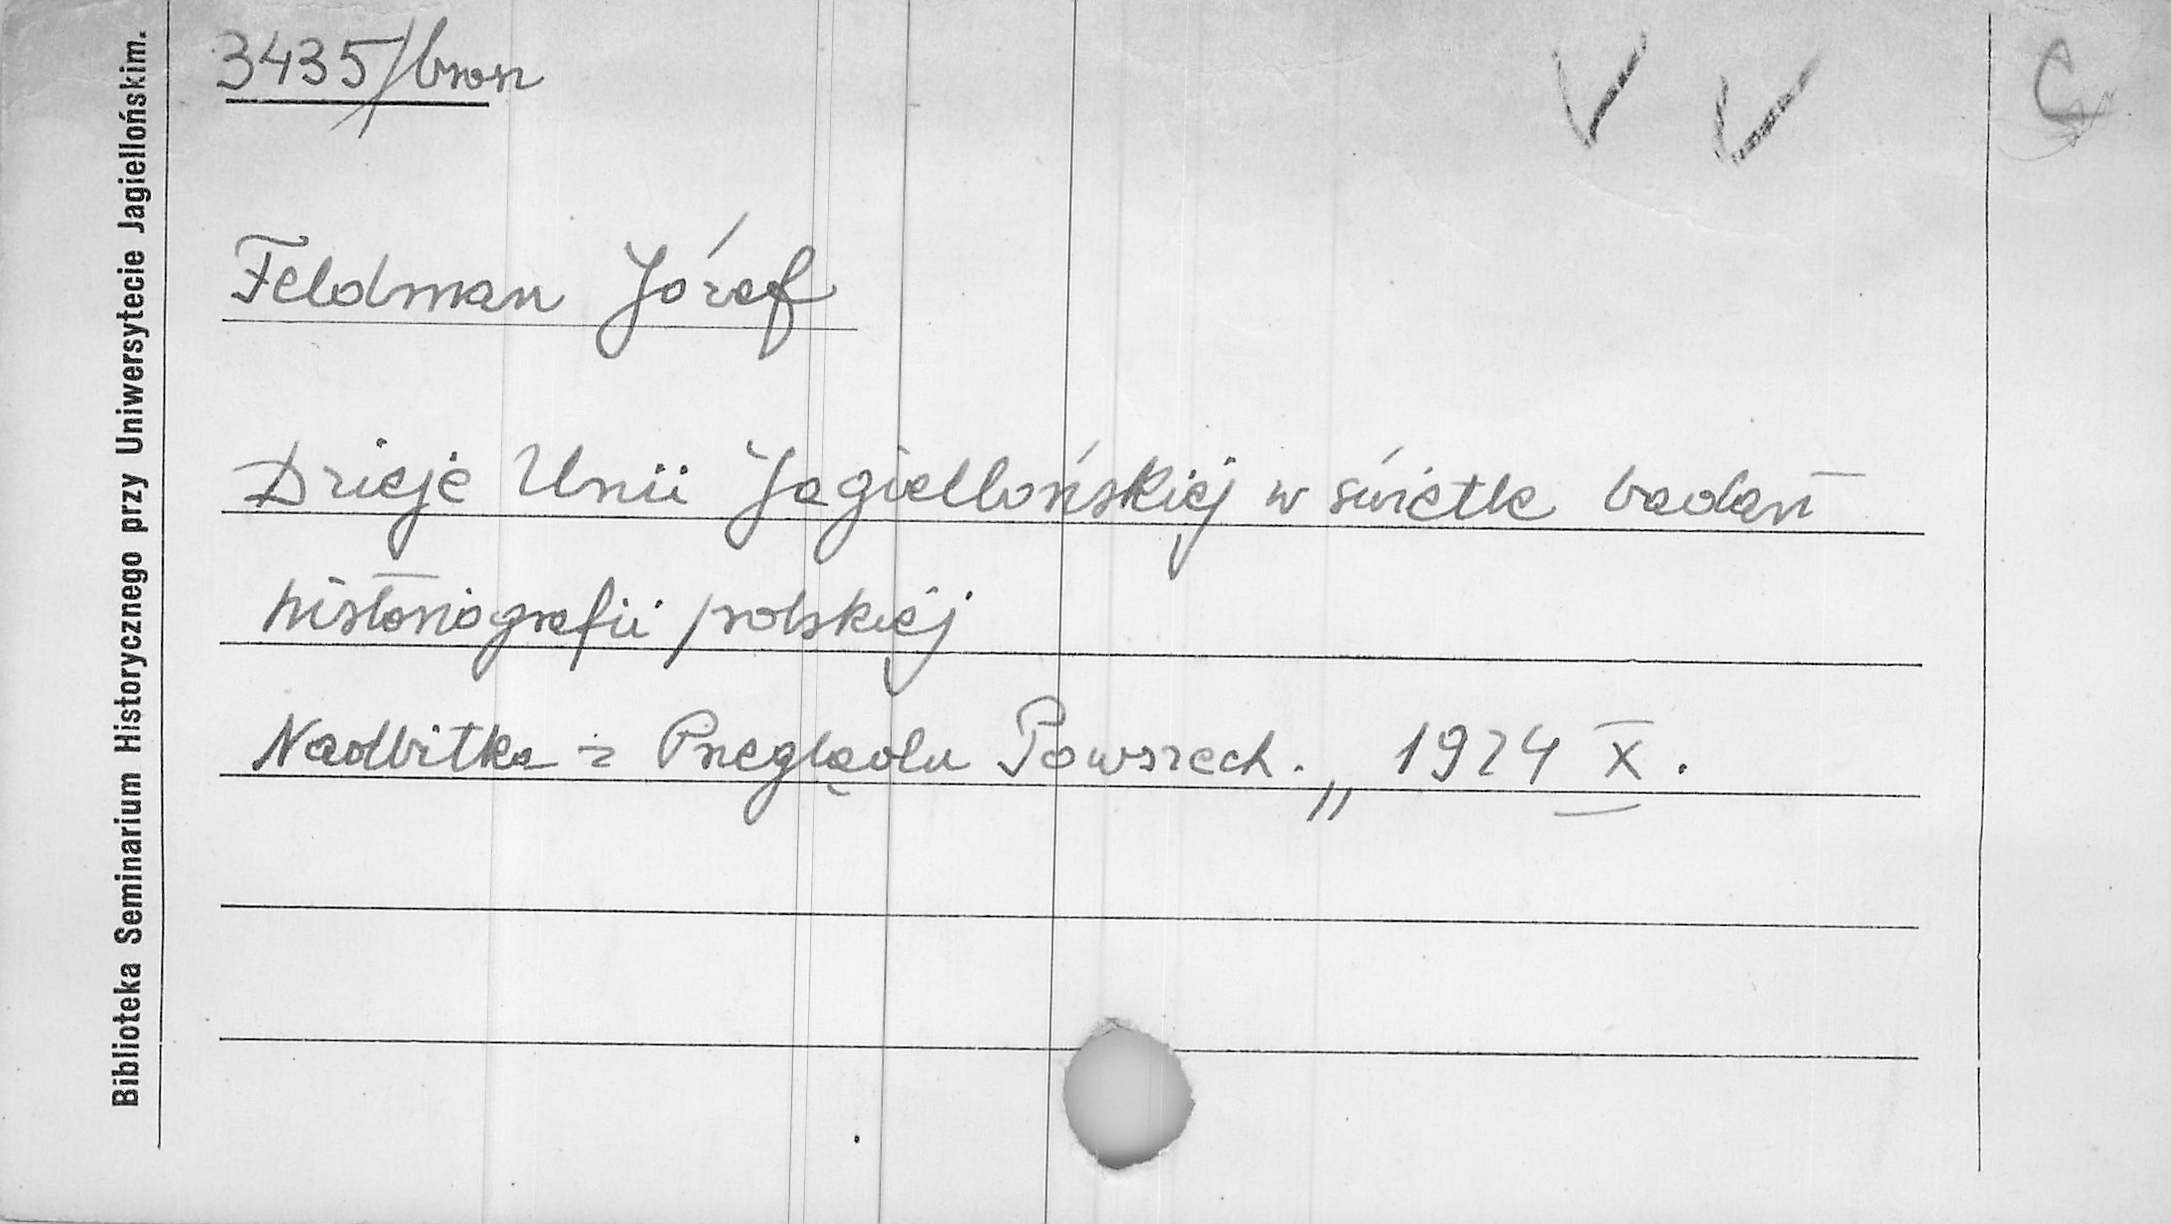 3435/bron
C
Feldman Józef
Dzieje Unii Jagiellońskiej w świetle badań
historiografii polskiej
Nadbitka z Przeglądu Powszech. „ 1924 X.
Biblioteka Seminarium Historycznego przy Uniwersytecie Jagiellońskim.